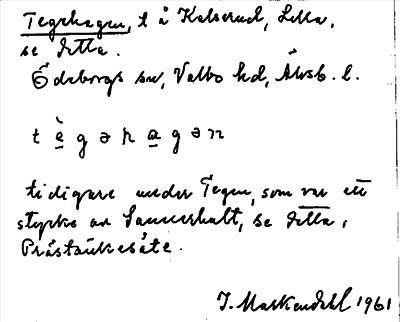 Tegehagen, t å Kalserud, Lilla,
se detta.
Ödeborgs sn, Valbo hd, Älvsb. l.
t è g ə h a g ə n
tidigare under Tegen, som var ett
stycke av Sannerhult, se detta,
Prästänkesäte.
J. Markendahl 1961